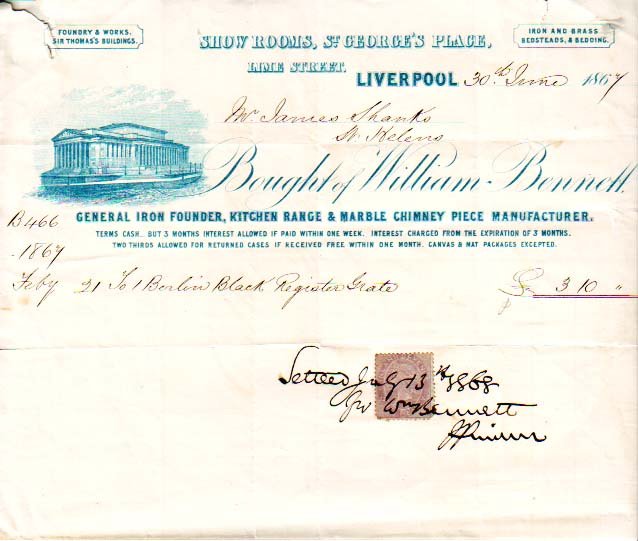 FOUNDRY & WORKS,
SIR THOMAS'S BUILDINGS.
IRON AND BRASS
BEDSTEADS, & BEDDING.
SHOW ROOMS, ST. GEORGE'S PLACE,
LIME STREET.
LIVERPOOL 30th June 1867
Mr James Shanks
St. Helens
Bought of William Bennett.
GENERAL IRON FOUNDER, KITCHEN RANGE & MARBLE CHIMNEY PIECE MANUFACTURER.
TERMS CASH. BUT 3 MONTHS INTEREST ALLOWED IF PAID WITHIN ONE WEEK. INTEREST CHARGED FROM THE EXPIRATION OF 3 MONTHS.
TWO THIRDS ALLOWED FOR RETURNED CASES IF RECEIVED FREE WITHIN ONE MONTH. CANVAS & MAT PACKAGES EXCEPTED.
B466
1867
Feby 21 To 1 Berlin Black Register Grate £ 3 10 "
Settled July 13th 1868
for Wm Bennett